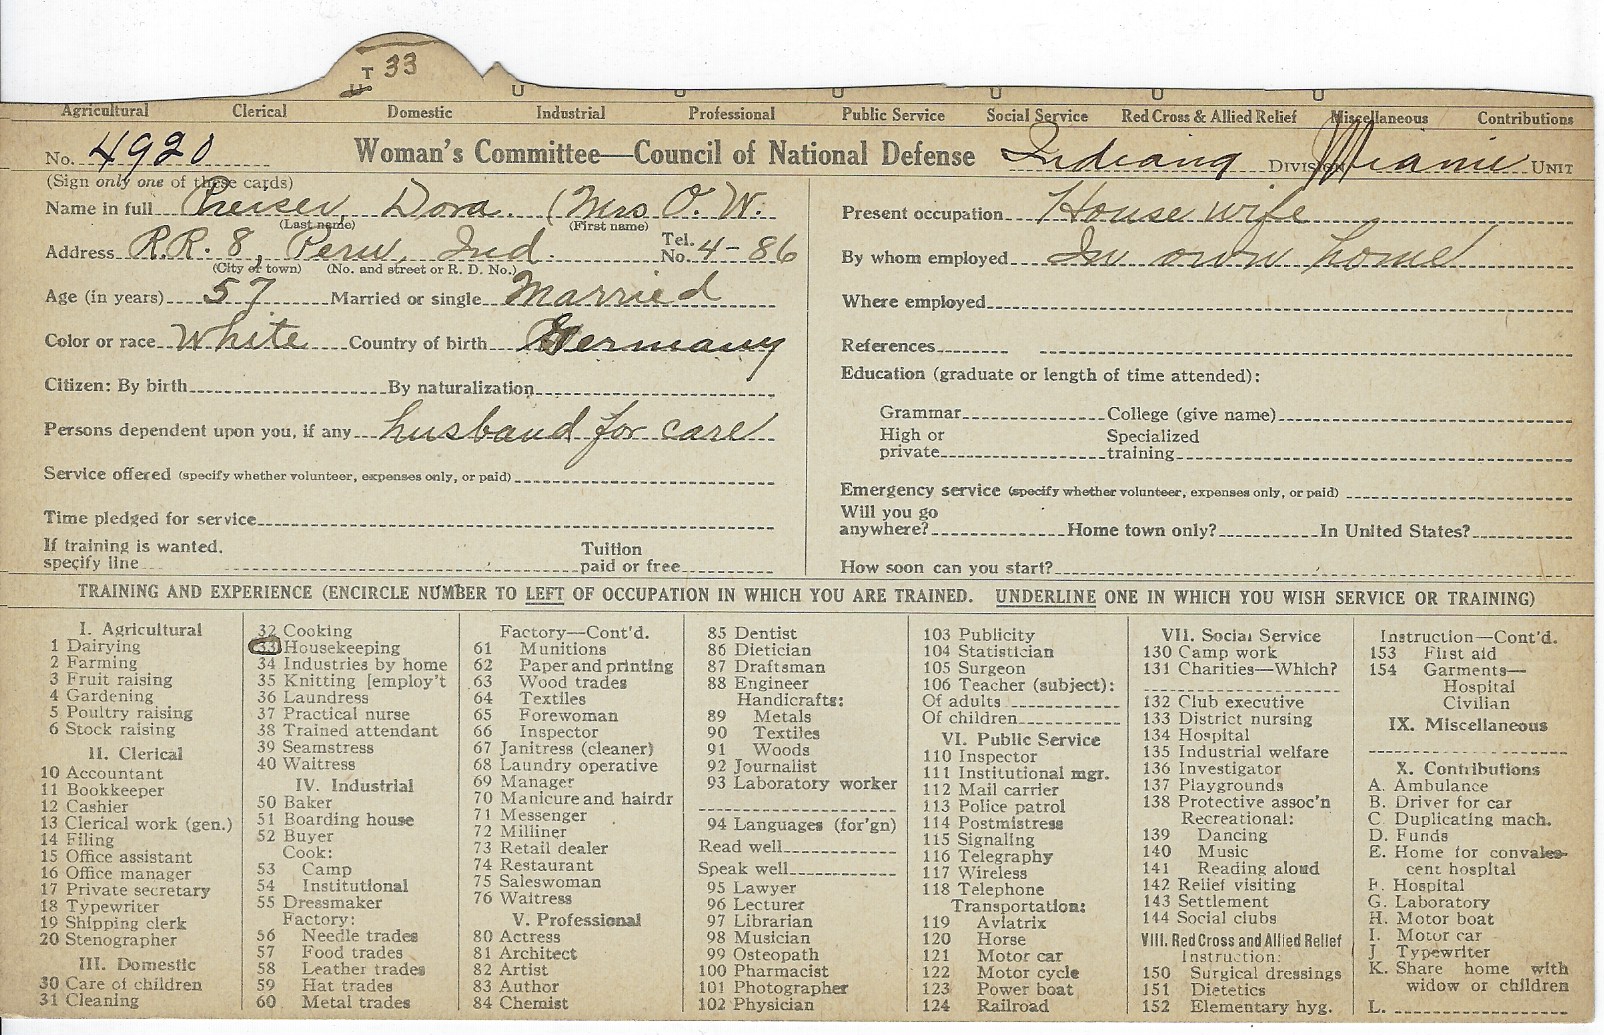 T 33
U
Agricultural Clerical Domestic Industrial Professional Public Service Social Service Red Cross & Allied Relief Miscellaneous Contributions
No. 4920 Woman's Committee—Council of National Defense Indiana DIVISION Miami UNIT
(Sign only one of these cards)
Name in full Preiser, Dora. (Mrs O. W.
(Last name) (First name)
Address R.R. 8, Peru, Ind. Tel. No. 4-86
(City or town) (No. and street or R. D. No.)
Age (in years) 57 Married or single Married
Color or race White Country of birth Germany
Citizen: By birth By naturalization
Persons dependent upon you, if any husband for care
Service offered (specify whether volunteer, expenses only, or paid)
Time pledged for service
If training is wanted, specify line Tuition paid or free
Present occupation House wife
By whom employed In own home
Where employed
References
Education (graduate or length of time attended):
Grammar College (give name)
High or private Specialized training
Emergency service (specify whether volunteer, expenses only, or paid)
Will you go anywhere? Home town only? In United States?
How soon can you start?
TRAINING AND EXPERIENCE (ENCIRCLE NUMBER TO LEFT OF OCCUPATION IN WHICH YOU ARE TRAINED. UNDERLINE ONE IN WHICH YOU WISH SERVICE OR TRAINING)
I. Agricultural
1 Dairying
2 Farming
3 Fruit raising
4 Gardening
5 Poultry raising
6 Stock raising
II. Clerical
10 Accountant
11 Bookkeeper
12 Cashier
13 Clerical work (gen.)
14 Filing
15 Office assistant
16 Office manager
17 Private secretary
18 Typewriter
19 Shipping clerk
20 Stenographer
III. Domestic
30 Care of children
31 Cleaning
32 Cooking
33 Housekeeping
34 Industries by home
35 Knitting [employ't
36 Laundress
37 Practical nurse
38 Trained attendant
39 Seamstress
40 Waitress
IV. Industrial
50 Baker
51 Boarding house
52 Buyer
Cook:
53 Camp
54 Institutional
55 Dressmaker
Factory:
56 Needle trades
57 Food trades
58 Leather trades
59 Hat trades
60 Metal trades
Factory—Cont'd.
61 Munitions
62 Paper and printing
63 Wood trades
64 Textiles
65 Forewoman
66 Inspector
67 Janitress (cleaner)
68 Laundry operative
69 Manager
70 Manicure and hairdr
71 Messenger
72 Milliner
73 Retail dealer
74 Restaurant
75 Saleswoman
76 Waitress
V. Professional
80 Actress
81 Architect
82 Artist
83 Author
84 Chemist
85 Dentist
86 Dietician
87 Draftsman
88 Engineer
Handicrafts:
89 Metals
90 Textiles
91 Woods
92 Journalist
93 Laboratory worker
94 Languages (for'gn)
Read well
Speak well
95 Lawyer
96 Lecturer
97 Librarian
98 Musician
99 Osteopath
100 Pharmacist
101 Photographer
102 Physician
103 Publicity
104 Statistician
105 Surgeon
106 Teacher (subject):
Of adults
Of children
VI. Public Service
110 Inspector
111 Institutional mgr.
112 Mail carrier
113 Police patrol
114 Postmistress
115 Signaling
116 Telegraphy
117 Wireless
118 Telephone
Transportation:
119 Aviatrix
120 Horse
121 Motor car
122 Motor cycle
123 Power boat
124 Railroad
VII. Social Service
130 Camp work
131 Charities—Which?
132 Club executive
133 District nursing
134 Hospital
135 Industrial welfare
136 Investigator
137 Playgrounds
138 Protective assoc'n
Recreational:
139 Dancing
140 Music
141 Reading aloud
142 Relief visiting
143 Settlement
144 Social clubs
VIII. Red Cross and Allied Relief
Instruction:
150 Surgical dressings
151 Dietetics
152 Elementary hyg.
Instruction—Cont'd.
153 First aid
154 Garments—
Hospital
Civilian
IX. Miscellaneous
X. Contributions
A. Ambulance
B. Driver for car
C. Duplicating mach.
D. Funds
E. Home for convales-
cent hospital
F. Hospital
G. Laboratory
H. Motor boat
I. Motor car
J Typewriter
K. Share home with
widow or children
L.